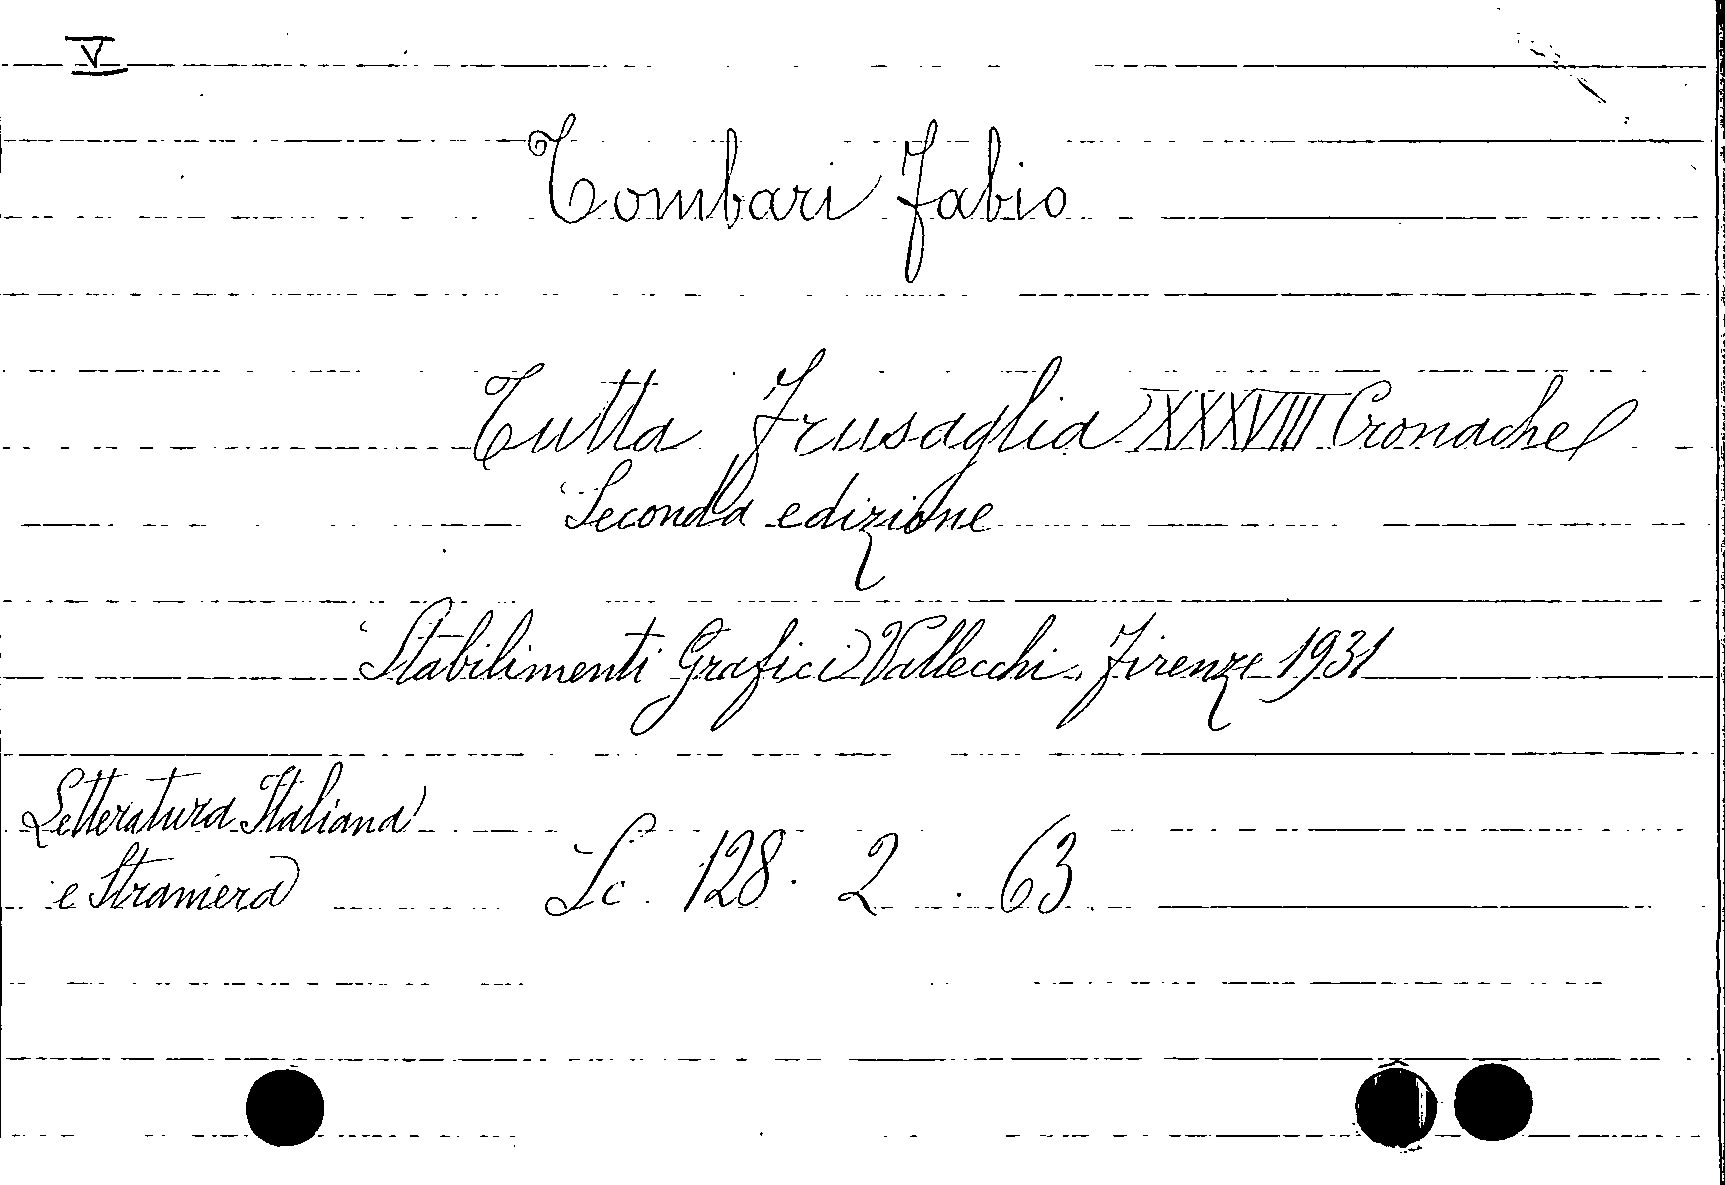 V
Tombari Fabio
Tutta Frusaglia XXXVIII Cronache
Seconda edizione
Stabilimenti Grafici Vallecchi. Firenze 1931
Letteratura Italiana
e Straniera
Sc. 128. 2. 63